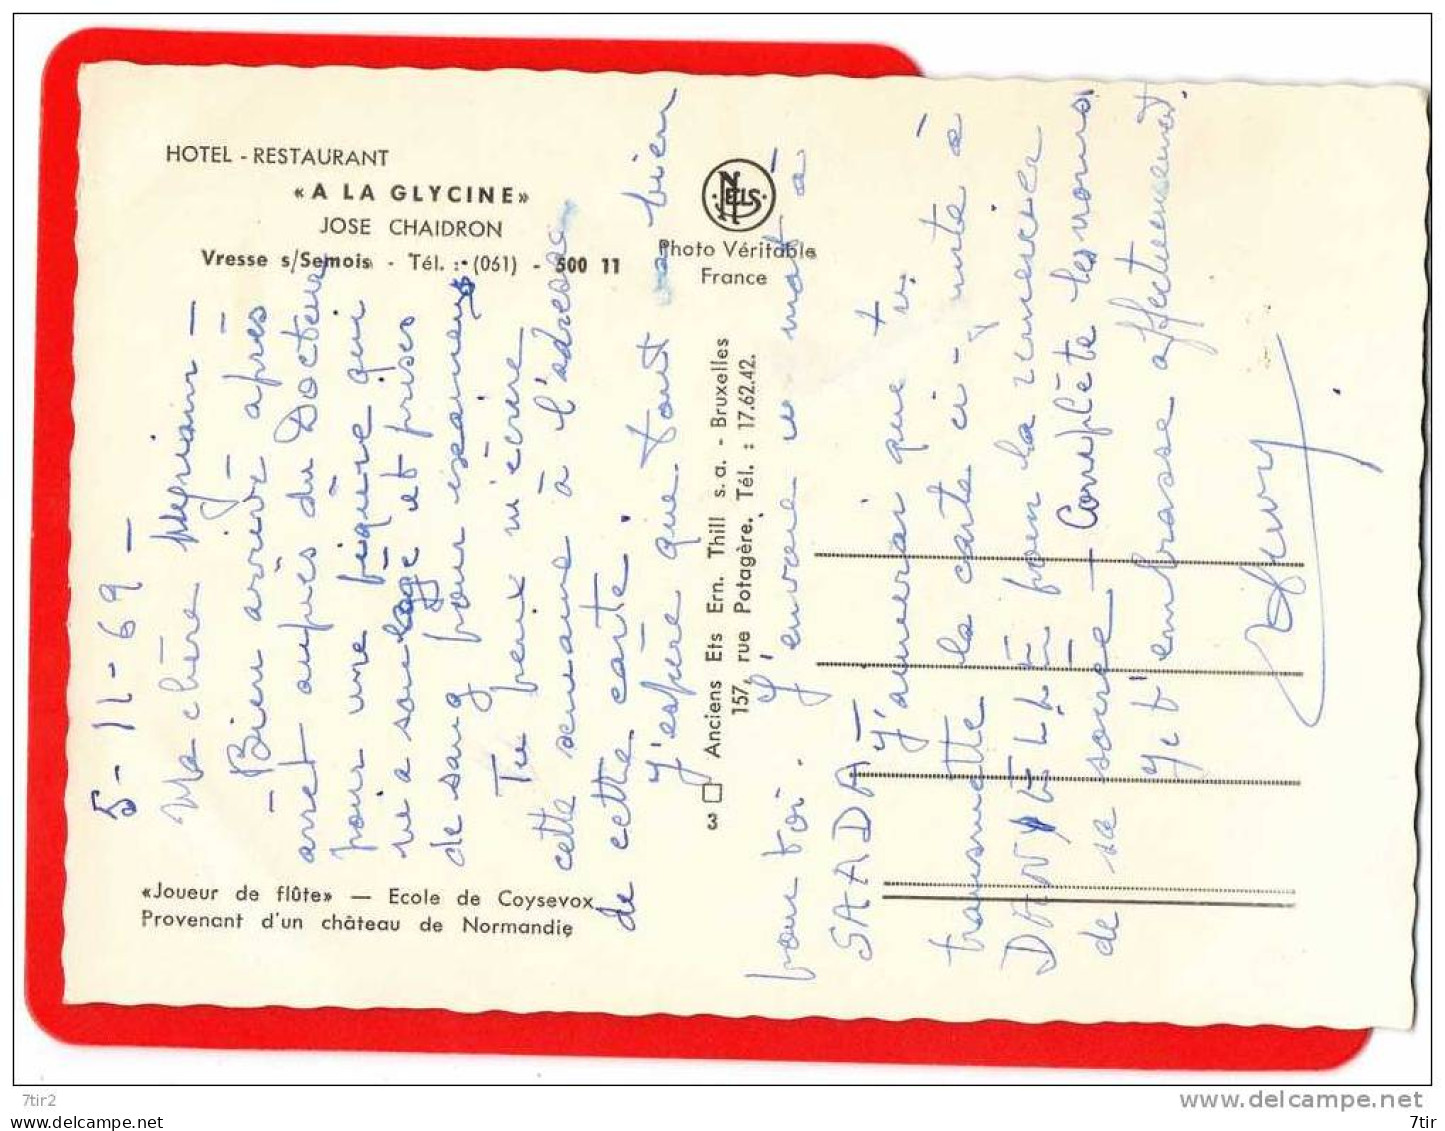 HOTEL - RESTAURANT
«A LA GLYCINE»
JOSE CHAIDRON
Vresse s/Semois - Tél. : (061) - 500 11
NELS
Photo Véritable
France
3 Anciens Ets Ern. Thill s.a. - Bruxelles
157, rue Potagère. Tél. : 17.62.42.
«Joueur de flûte» — Ecole de Coysevox
Provenant d'un château de Normandie
5-11-69 -
Ma chère
- Bien arrivé après
arret auprès du Docteur
pour une piqure qui
m'a soulagé et prises
de sang pour examens
Tu peux m'écrire
cette semaine à l'adresse
de cette carte.
J'espère que tout va bien
pour toi. J'envoie un mot à
SAADA
J'aimerai que tu
transmette la carte ci-jointe à
DANIELLE pour la remercier
de sa soirée - Complète les noms
Je t'embrasse affectueusement.
delcampe.net
7tir2
www.delcampe.net
7tir